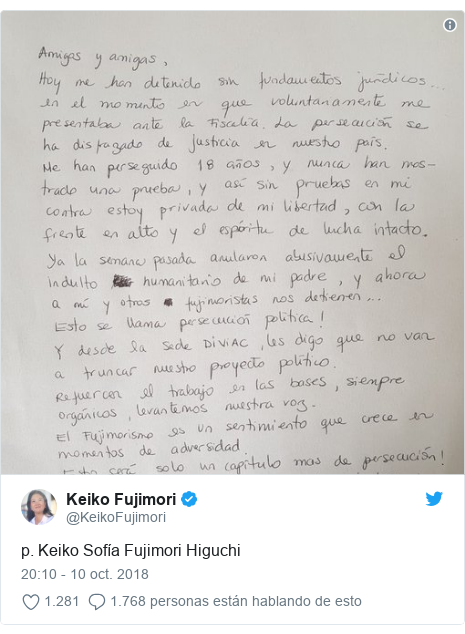 Amigas y amigas,
Hoy me han detenido sin fundamentos jurídicos...
en el momento en que voluntariamente me
presentaba ante la Fiscalía. La persecución se
ha disfrazado de justicia en nuestro país.
Me han perseguido 18 años, y nunca han mos-
trado una prueba, y así sin pruebas en mi
contra estoy privada de mi libertad, con la
frente en alto y el espíritu de lucha intacto.
Ya la semana pasada anularon abusivamente el
indulto humanitario de mi padre, y ahora
a mí y otros fujimoristas nos detienen...
Esto se llama persecución política!
Y desde la sede DIVIAC, les digo que no van
a truncar nuestro proyecto político.
Refuercen el trabajo en las bases, siempre
orgánicos, levantemos nuestra voz.
El Fujimorismo es un sentimiento que crece en
momentos de adversidad.
Esto será solo un capítulo mas de persecución!
Keiko Fujimori
@KeikoFujimori
p. Keiko Sofía Fujimori Higuchi
20:10 - 10 oct. 2018
1.281 1.768 personas están hablando de esto